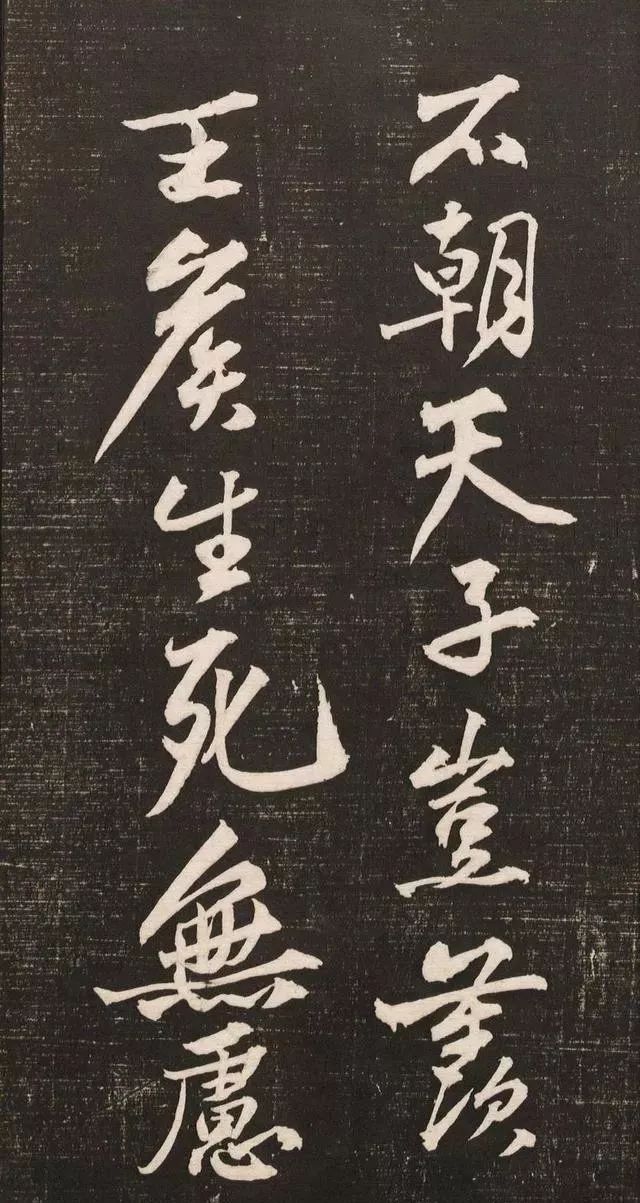 不朝天子豈羨
王侯生死無慮